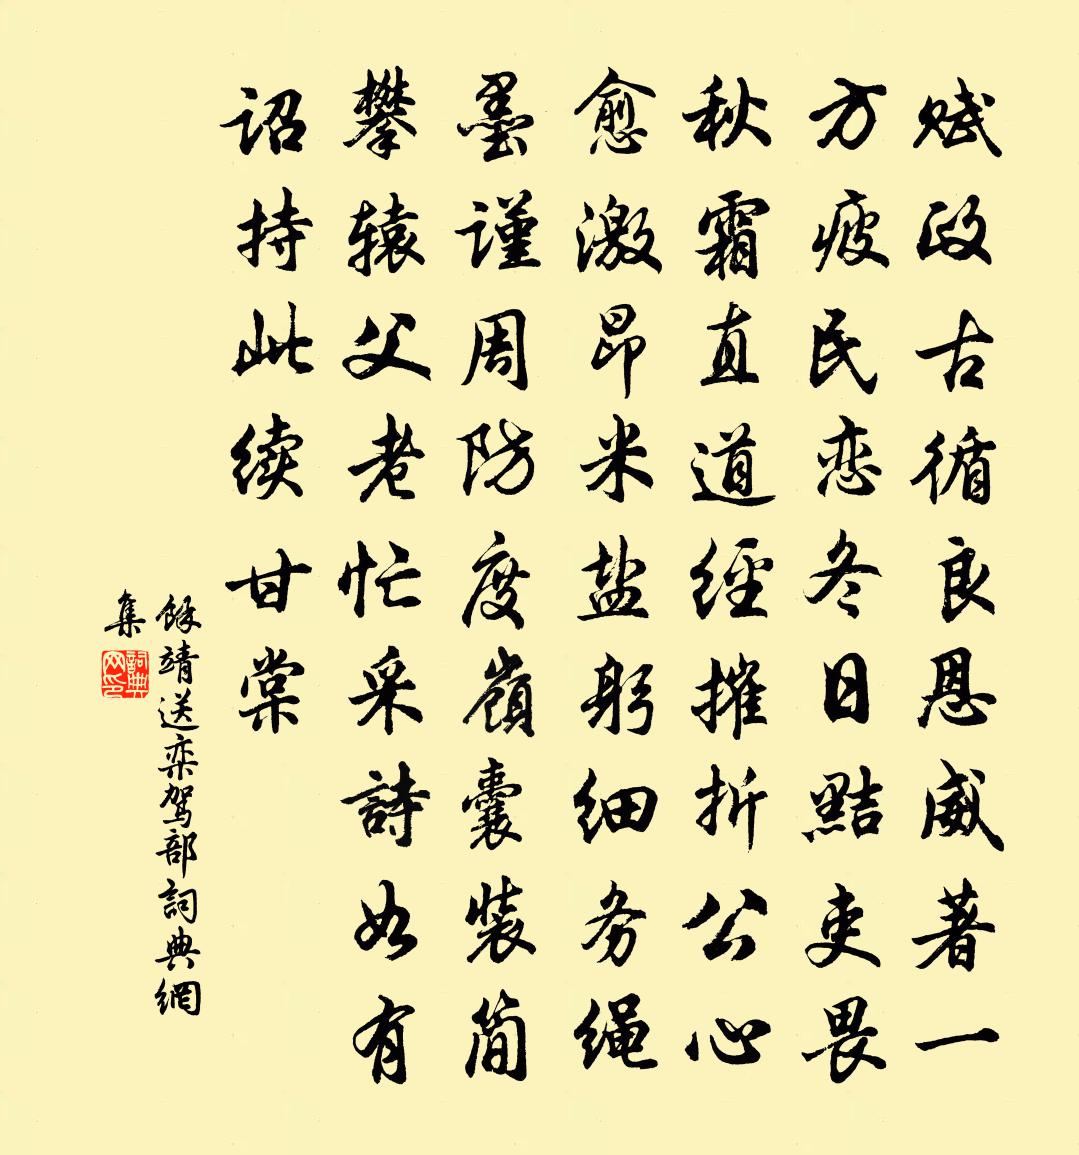 赋政古循良恩威著一
方疲民恋冬日黠吏畏
秋霜直道經摧折公心
愈激昂米盐躬细务绳
墨谨周防度嶺囊装简
攀辕父老忙采詩如有
诏持此续甘棠
餘靖送栾驾部詞典網
集
詞典网印